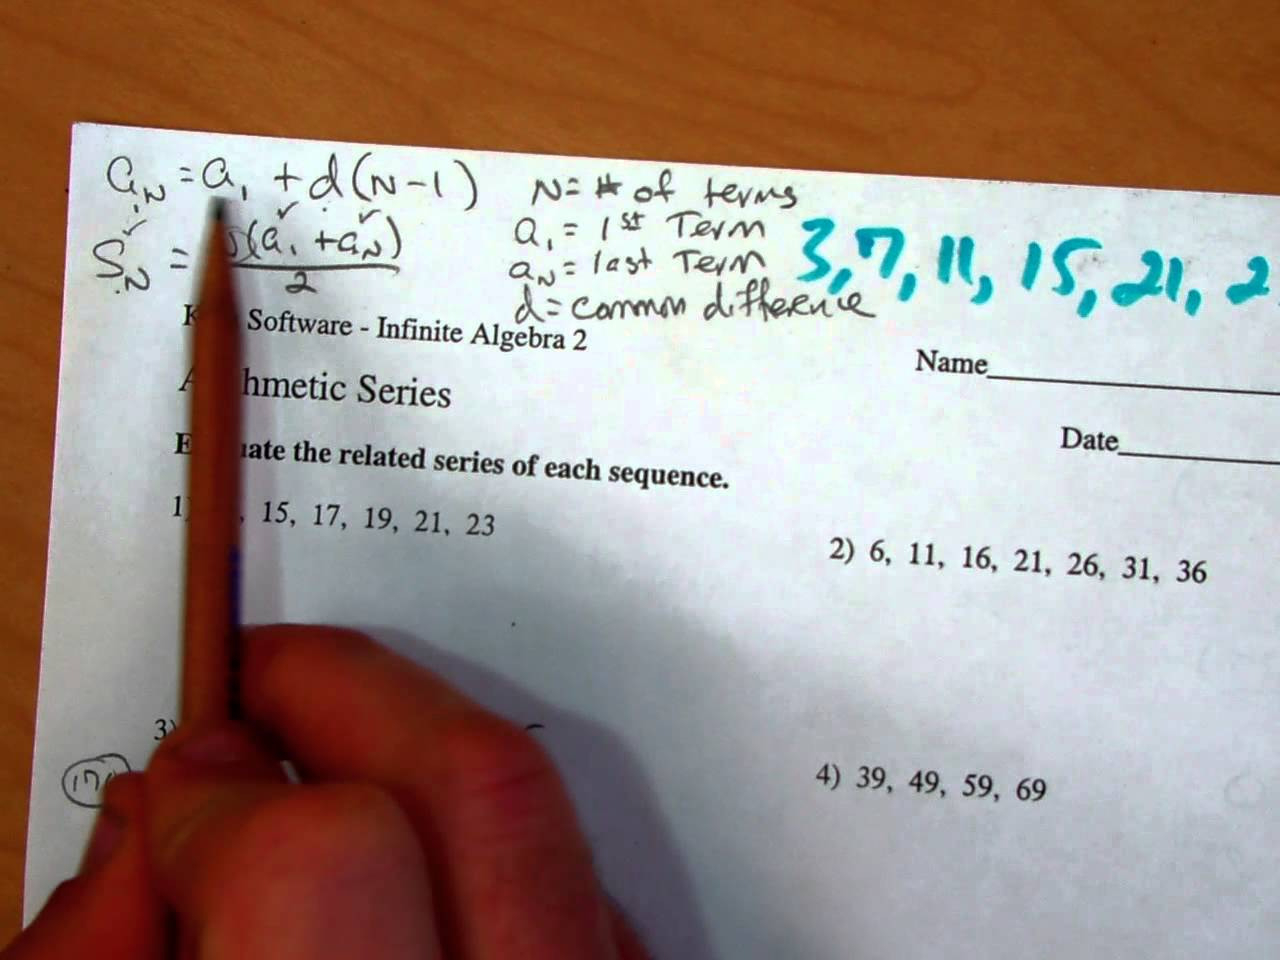 aN = a1 + d(N-1) N = # of terms
SN = (a1 + aN) a1 = 1st Term
2 aN = last Term
d = common difference
3, 7, 11, 15, 21, 2
Software - Infinite Algebra 2
Name
hmetic Series
Date
the related series of each sequence.
1) , 15, 17, 19, 21, 23
2) 6, 11, 16, 21, 26, 31, 36
3)
4) 39, 49, 59, 69